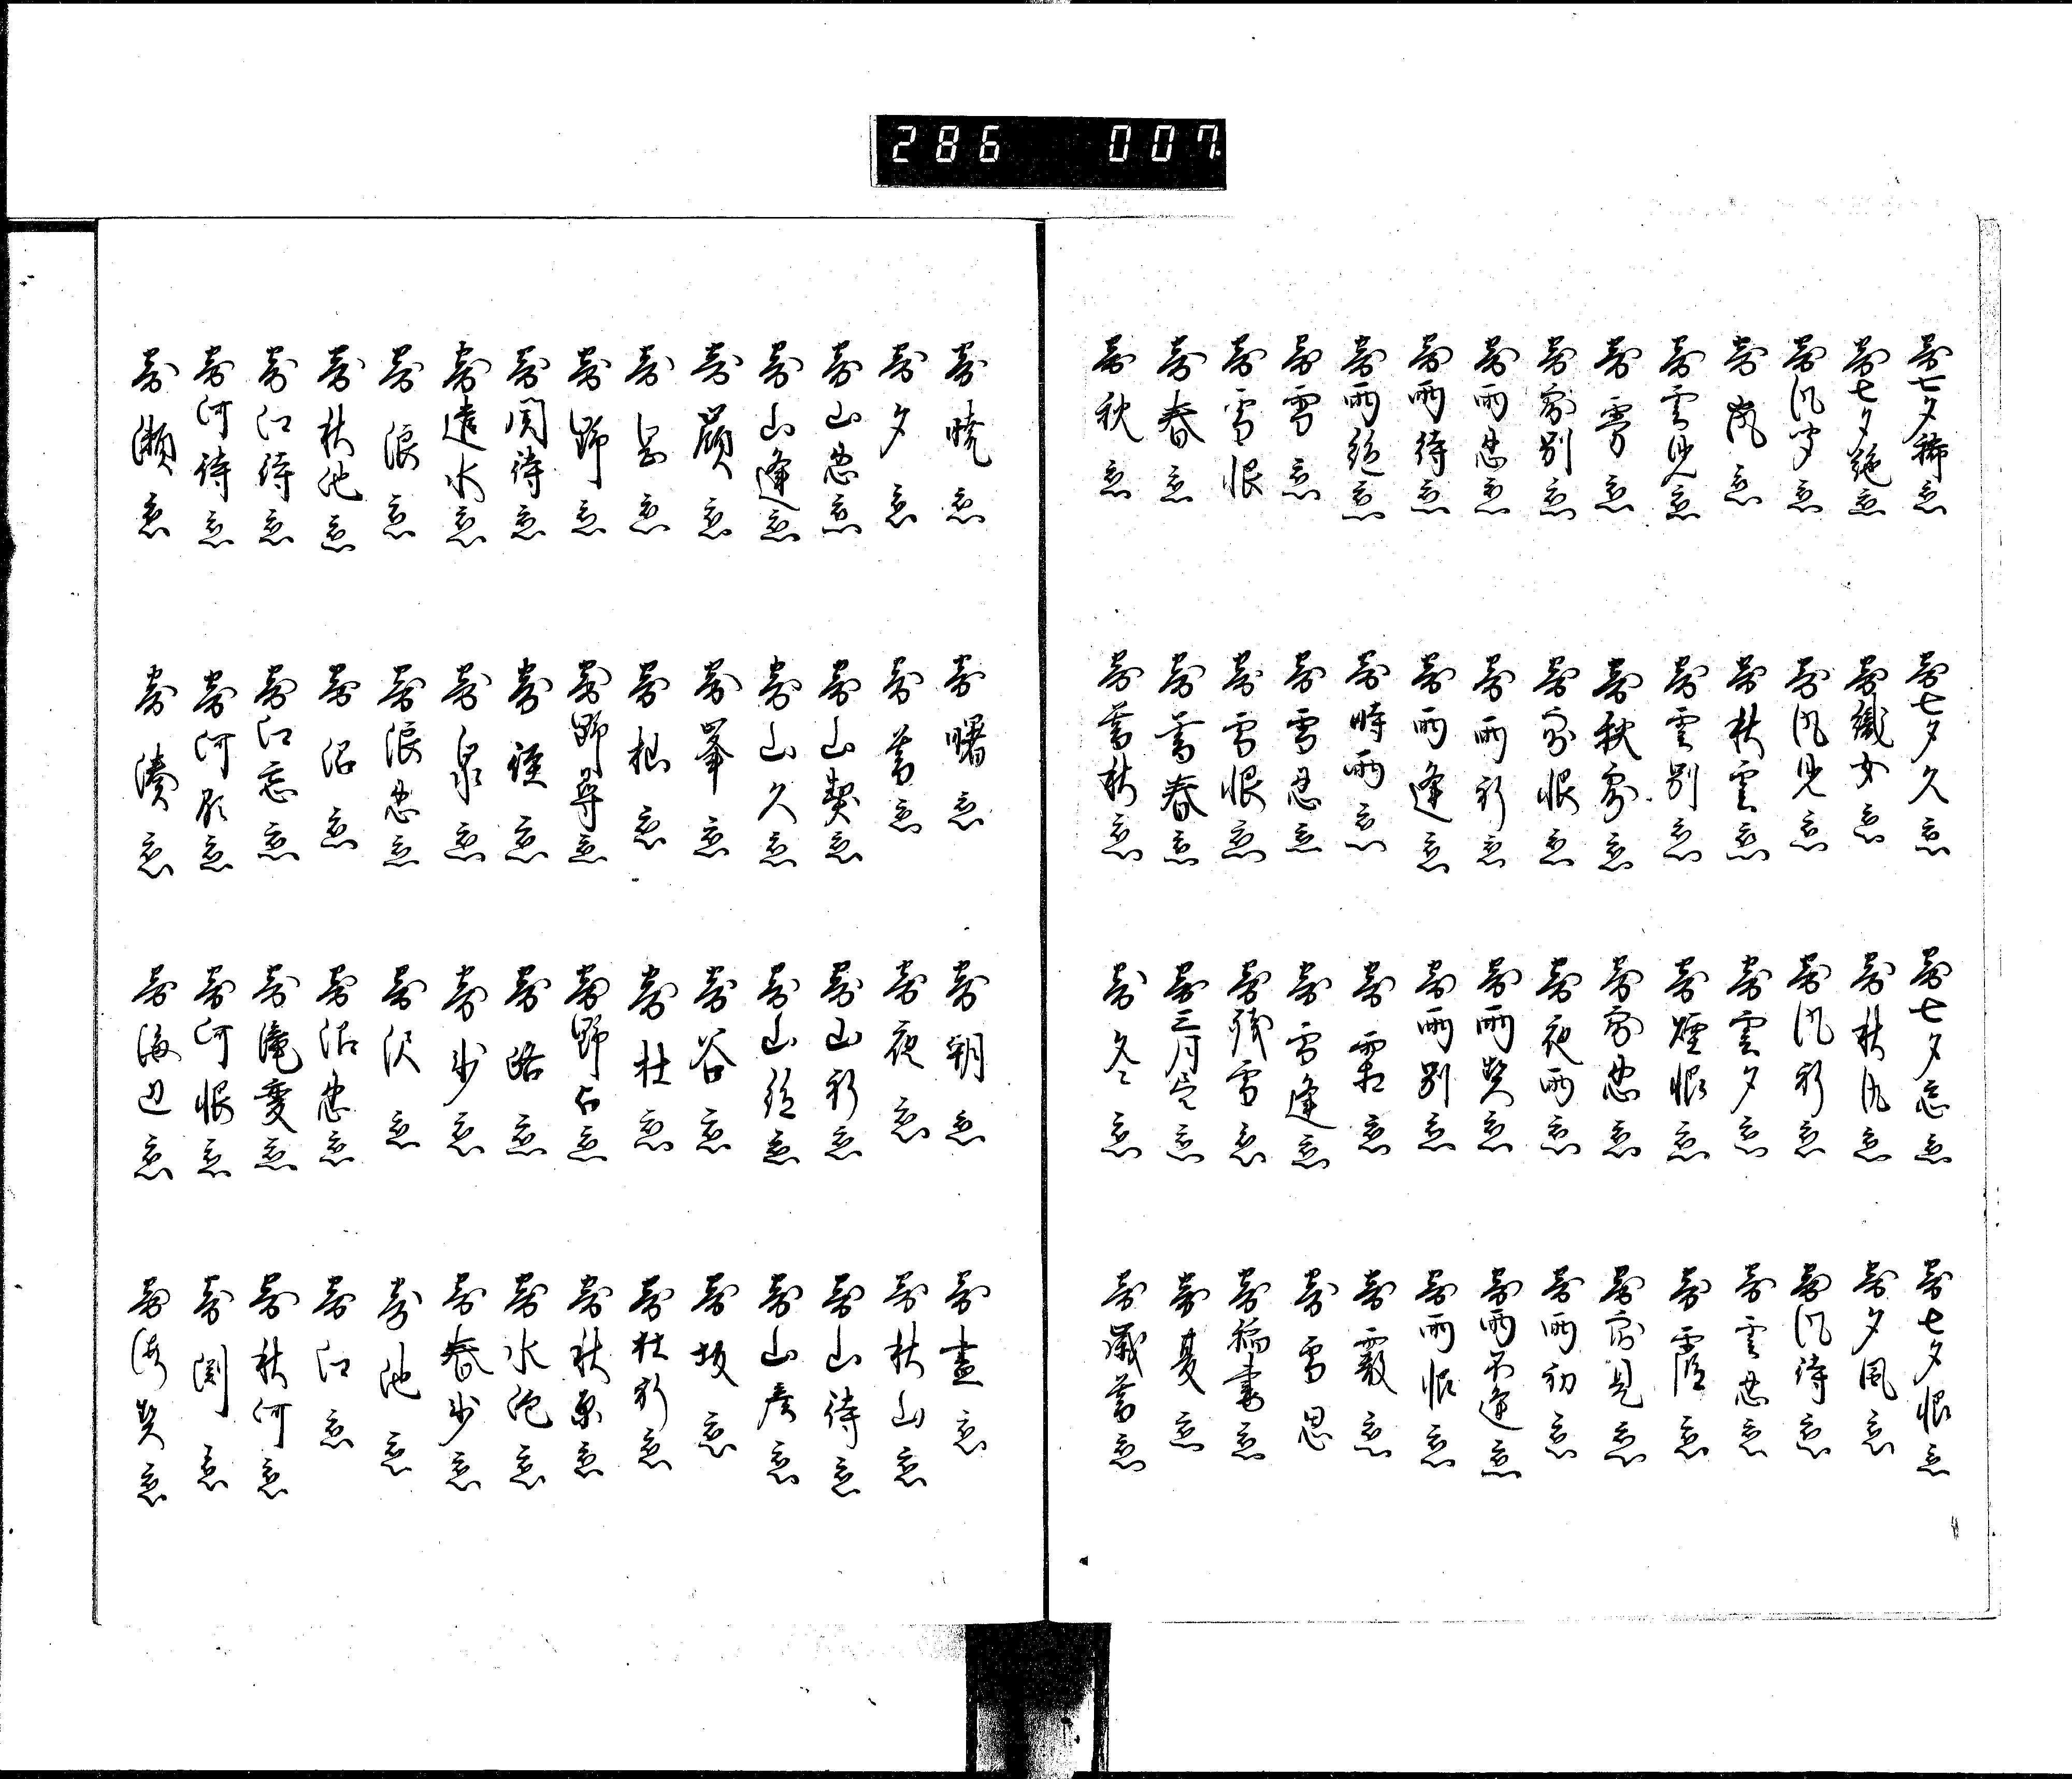 286 007
寄七夕稀恋 寄七夕久恋 寄七夕忘恋 寄七夕恨恋
寄七夕絶恋 寄織女恋 寄秋風恋 寄夕風恋
寄風聞恋 寄風見恋 寄風祈恋 寄風待恋
寄嵐恋 寄秋雲恋 寄雲夕恋 寄雲忍恋
寄雲見恋 寄雲別恋 寄煙恨恋 寄霞恋
寄霧恋 寄秋霧恋 寄霧忍恋 寄霧見恋
寄霧別恋 寄霧恨恋 寄夜雨恋 寄雨初恋
寄雨忍恋 寄雨祈恋 寄雨契恋 寄雨不逢恋
寄雨待恋 寄雨逢恋 寄雨別恋 寄雨恨恋
寄雨絶恋 寄時雨恋 寄霜恋 寄霰恋
寄雪恋 寄雪忍恋 寄雪逢恋 寄雪思
寄雪恨 寄雪恨恋 寄残雪恋 寄稲妻恋
寄春恋 寄暮春恋 寄三月尽恋 寄夏恋
寄秋恋 寄暮秋恋 寄冬恋 寄歳暮恋
寄暁恋 寄曙恋 寄朝恋 寄昼恋
寄夕恋 寄暮恋 寄夜恋 寄秋山恋
寄山忍恋 寄山契恋 寄山祈恋 寄山待恋
寄山逢恋 寄山久恋 寄山絶恋 寄山彦恋
寄峯恋 寄谷恋 寄坂恋
寄杣恋 寄杜恋 寄杜祈恋
寄野恋 寄野尋恋 寄野占恋 寄秋原恋
寄関待恋 寄径恋 寄路恋 寄水泡恋
寄遣水恋 寄泉恋
寄浪恋 寄浪忍恋 寄沢恋 寄池恋
寄秋池恋 寄沼恋 寄沼忍恋 寄江恋
寄江待恋 寄江忘恋 寄滝変恋 寄秋河恋
寄河待恋 寄河顕恋 寄河恨恋 寄淵恋
寄瀬恋 寄湊恋 寄海辺恋 寄海契恋